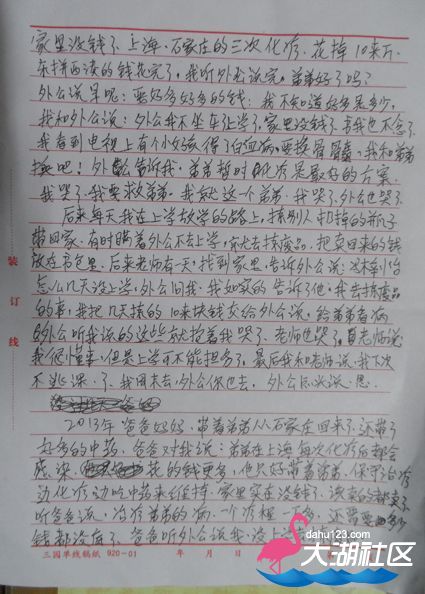 家里没钱了、上海、石家庄的三次化疗、花掉10来万、
东拼西凑的钱花完了。我听外公说完。弟弟好了吗?
外公说早呢:要好多好多的钱:我不知道好多是多少。
我和外公说:外公我不坐车上学了家里没钱了 书我也不念了
我看到电视上有个小孩得了白血病。要换骨髓、我和弟弟
换吧!外公告诉我、弟弟暂时化疗是最好的方案
我哭了、我要求弟弟。我就这一个弟弟、我哭了、外公也哭了
后来每天我在上学放学的路上,捡别人扔掉的瓶子
带回家、有时瞒着外公不去上学,就去捡废品、把卖回来的钱
放在书包里。后来老师有一天,找到家里、告诉外公说:
怎么几天没上学、外公问我、我如实的告诉了他,我去捡废品
的事,我把几天捡的10来块钱交给外公说、给弟弟看病
外公听我说的这些就抱着我哭了、老师也哭了、老师说
我很懂事、但是上学可不能耽误了。最后我和老师说、我下次
不逃课了、我周末去,外公你也去。外公
2013年爸爸妈妈、带着弟弟从石家庄回来了、还带了
好多的中药。爸爸对我说:弟弟在上海每次化疗后都会
感染 花的钱更多,他只好带着弟弟、保守治疗
边化疗边吃中药来维持、家里实在没钱了、该卖的都卖了
听爸爸说,治疗弟弟的病、一个疗程一万多、还需要
钱都没底了、爸爸听外公说我、没上
装
订
线
三园单线稿纸 920—01 年 月 日
dahu123.com
大湖社区